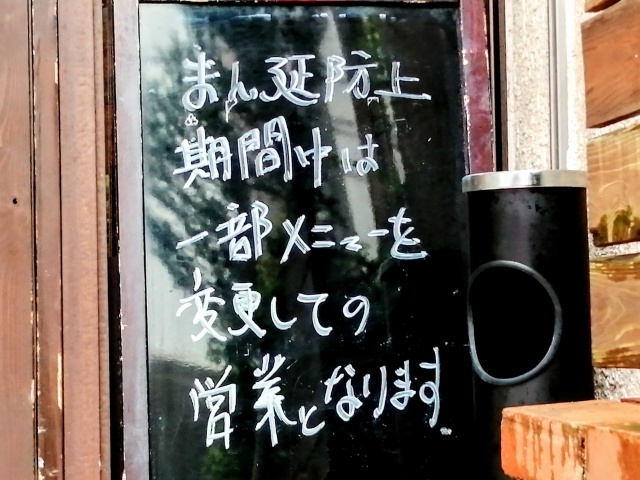 まん延防止
期間中は
一部メニューを
変更しての
営業となります